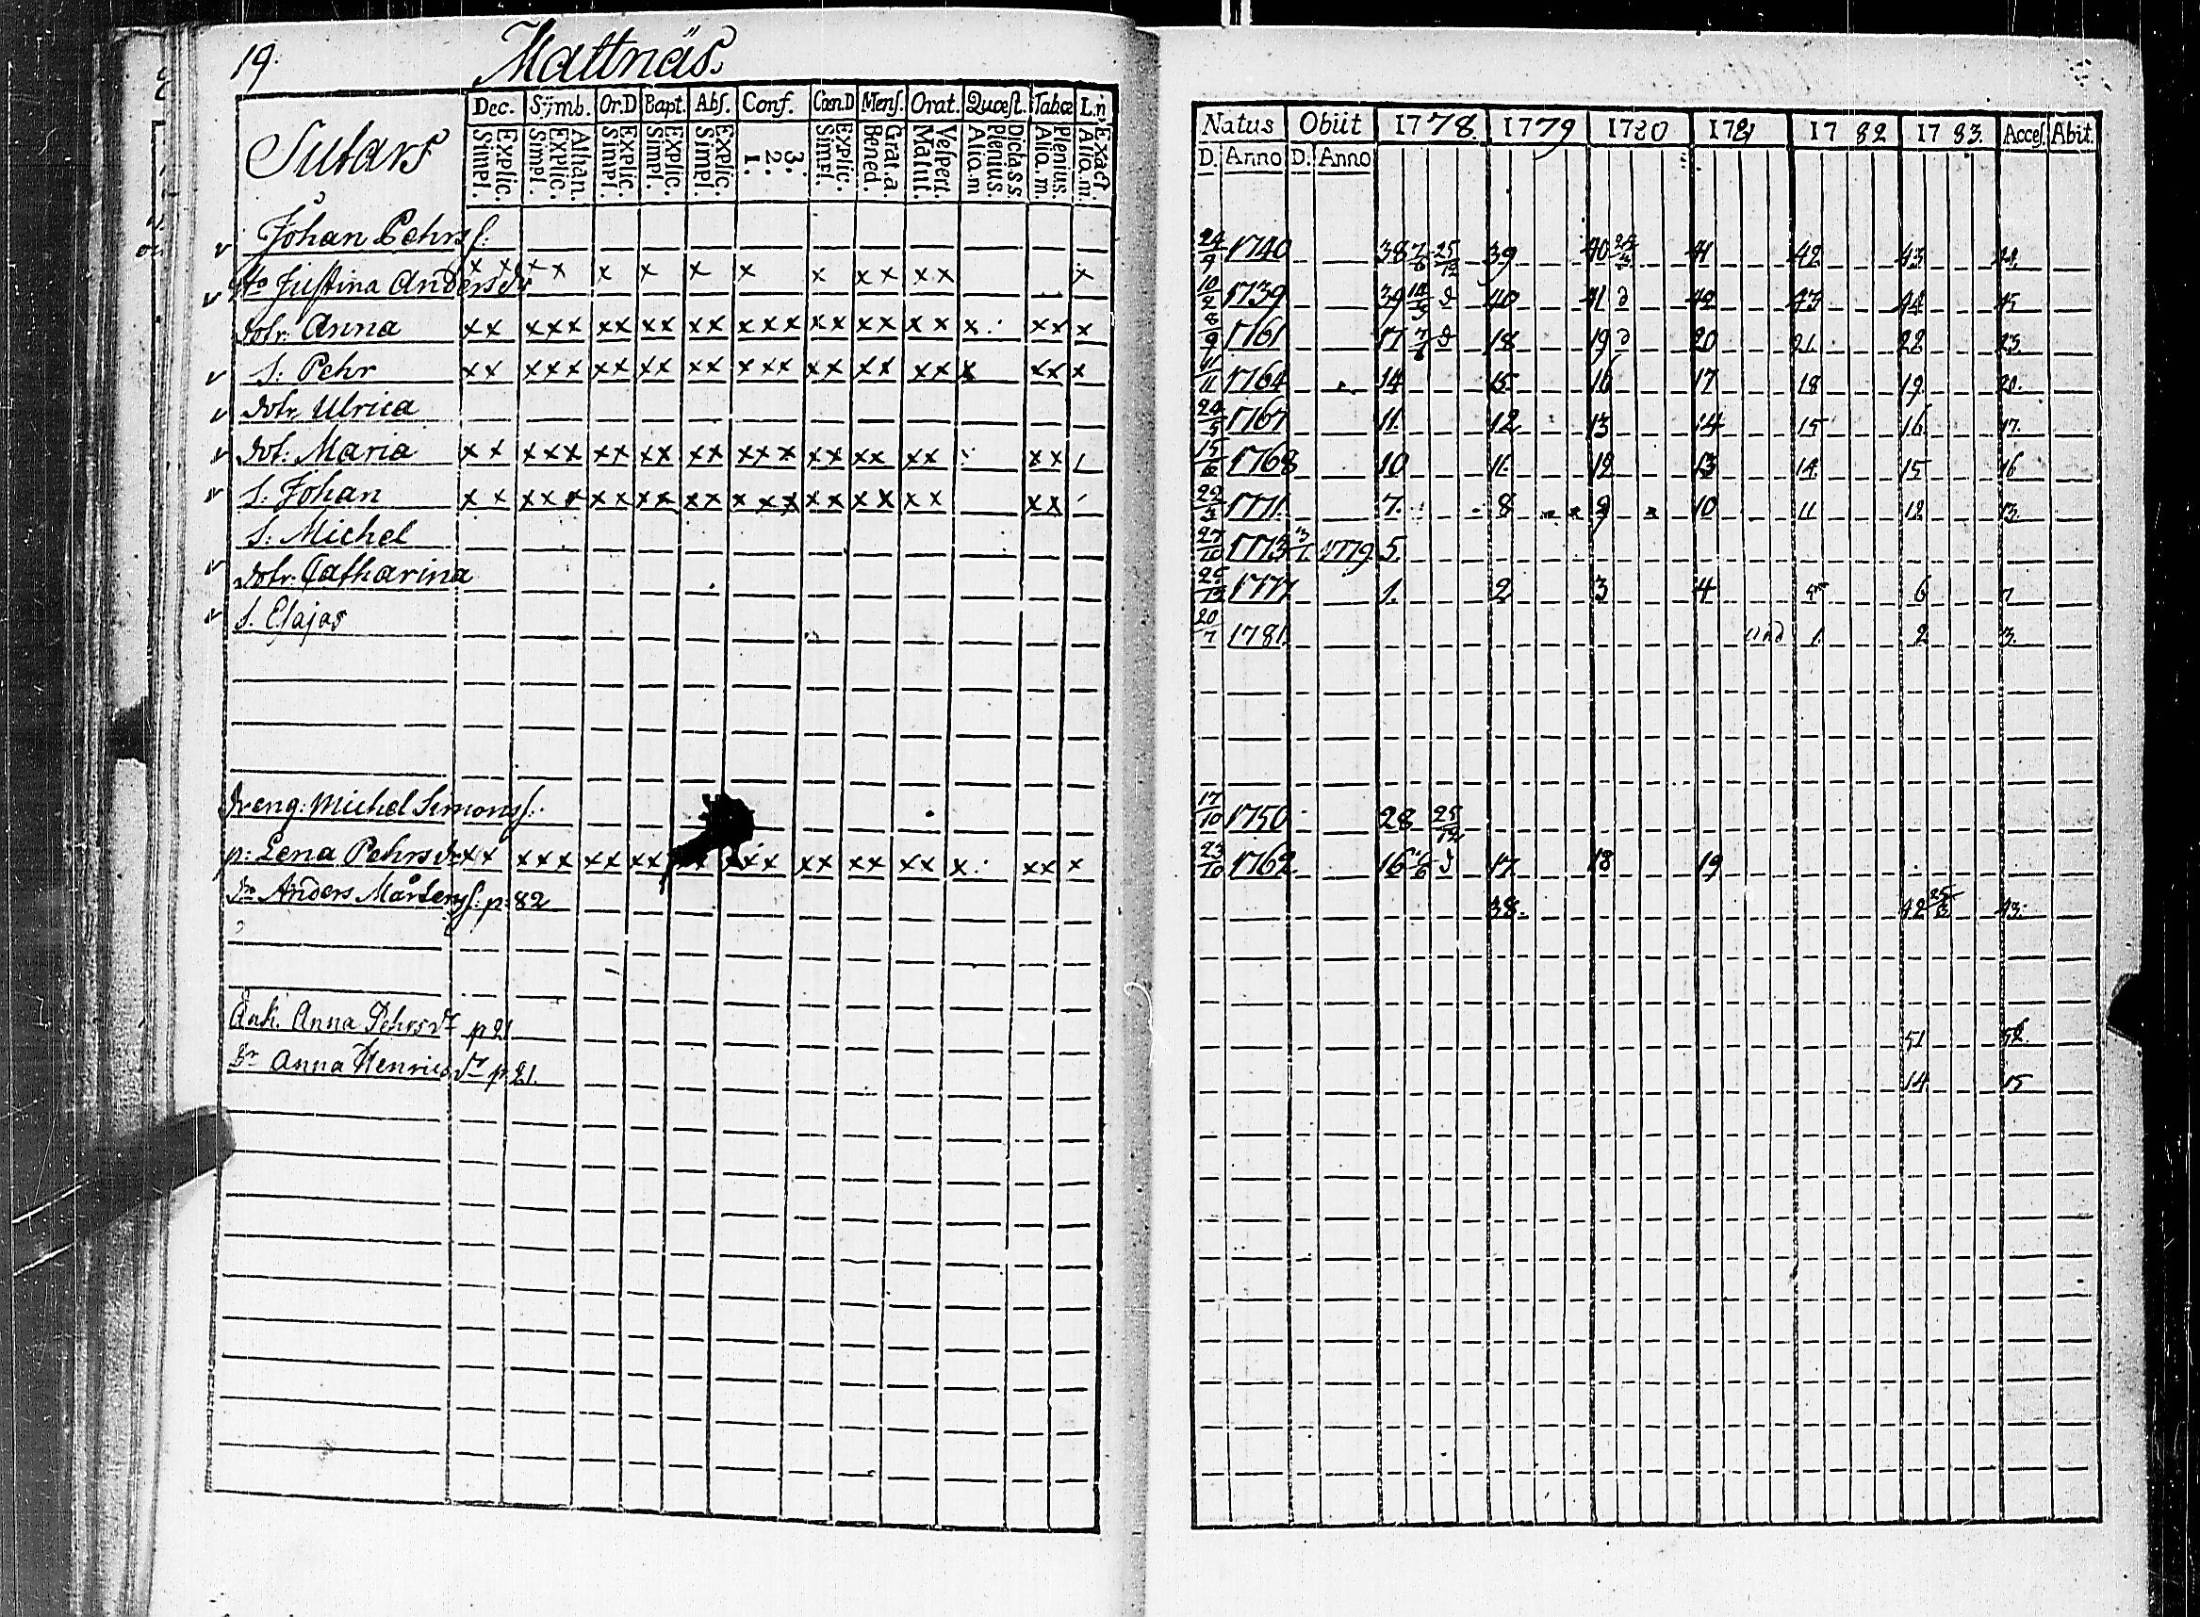 19. Mattnäs.
Dec. Symb. Or.D Bapt. Abs. Conf. Cœn.D Mens. Orat. Quæst. Tabœ L.n
Sutars
Simpl. Explic. Simpl. Explic. Athan. Simpl. Explic. Simpl. Explic. Simpl. Explic. 1. 2. 3. Simpl. Explic. Bened. Grat.a Matut. Vespert. Alio.m Plenius. Dicta.s.s Alio.m. Plenius. Alio.m. Exact
Johan Pehrss:
Justina Andersdr
dotr. Anna
S: Pehr
dotr Ulrica
dot: Maria
S. Johan
S: Michel
dotr. Catharina
S. Esajas
dreng: Michel Simonss:
p: Lena Pehrsdr
dr Anders Mårtenss: p: 82
Enk. Anna Pehrsdr p 21
Anna Henricsdr p. 21.
Natus Obiit 1778. 1779 1780 1781 1782 1783. Acces. Abit.
D. Anno D. Anno
24/9 1740 38 7/6 25/12 39 40 41 42 43
10/2 1739 39 40 41 42 43 44 45
8/9 1761 17 18 19 20 21 22 23
1764 14 15 16 17 18 19 20.
24/5 1767 11. 12 13 14 15 16 17.
15/12 1768 10 11. 12 13 14. 15 16
1771. 7. 8 9 10 11 12 13.
27/10 1773 1779 5.
25/12 1777 1. 2 3 4 5 6 7
20/7 1781. 1. 2 3.
17/10 1750 28 25/12
23/10 1762 16 17 18 19
38. 42 43.
51 52.
14 15